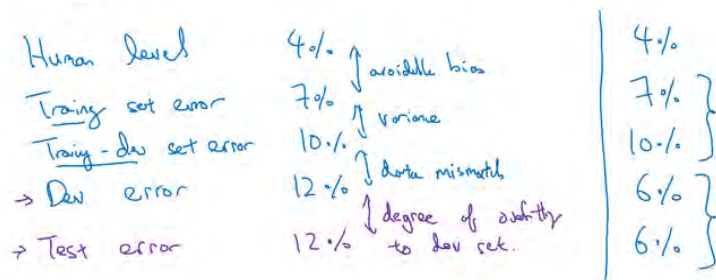 Human level 4% 4%
avoidable bias
Training set error 7% 7%
variance
Training-dev set error 10% 10%
data mismatch
→ Dev error 12% 6%
degree of overfitting
to dev set.
→ Test error 12% 6%